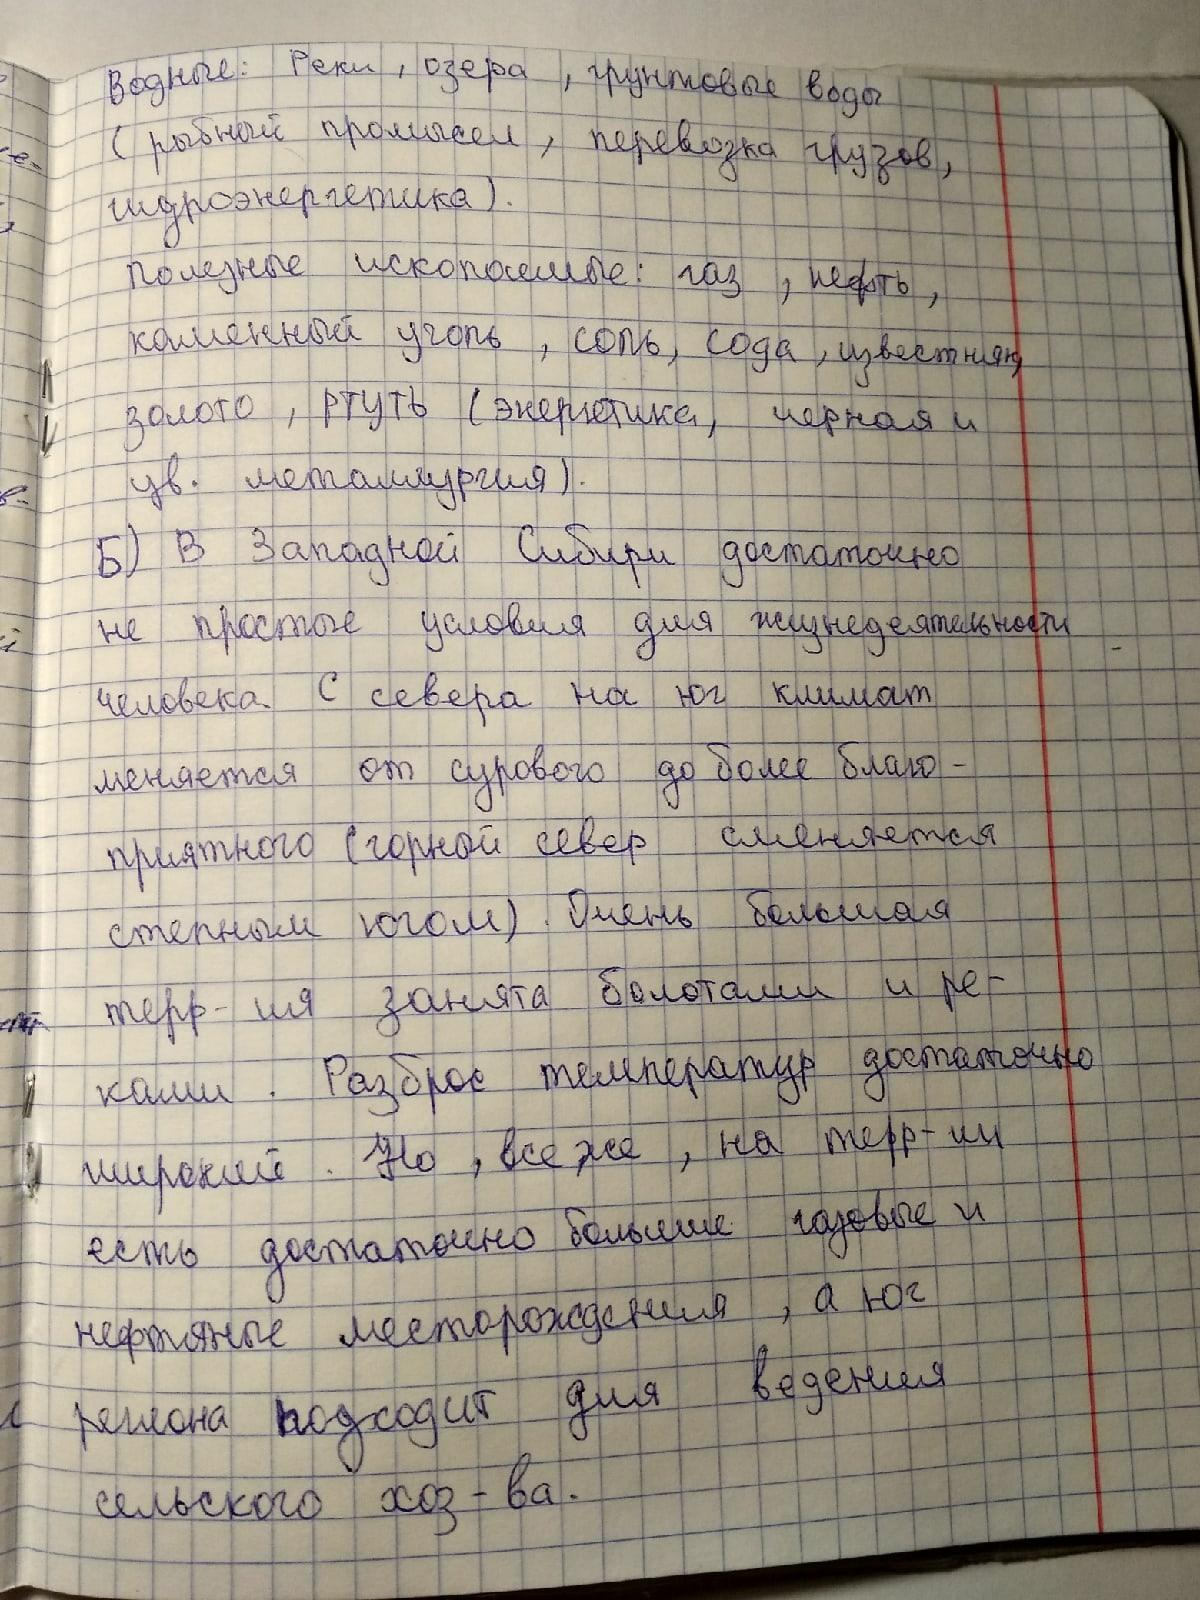 Водные: Реки, озера, грунтовые воды
(рыбный промысел, перевозка грузов,
гидроэнергетика).
Полезные ископаемые: газ, нефть,
каменный уголь, соль, сода, известняк,
золото, ртуть (энергетика, черная и
цв. металлургия).
Б) В Западной Сибири достаточно
не простые условия для жизнедеятельности
человека. С севера на юг климат
меняется от сурового до более благо-
приятного (горный север сменяется
степным югом). Очень большая
терр-ия занята болотами и ре-
ками. Разброс температур достаточно
широкий. Но, все же, на терр-ии
есть достаточно большие газовые и
нефтяные месторождения, а юг
региона подходит для ведения
сельского хоз-ва.